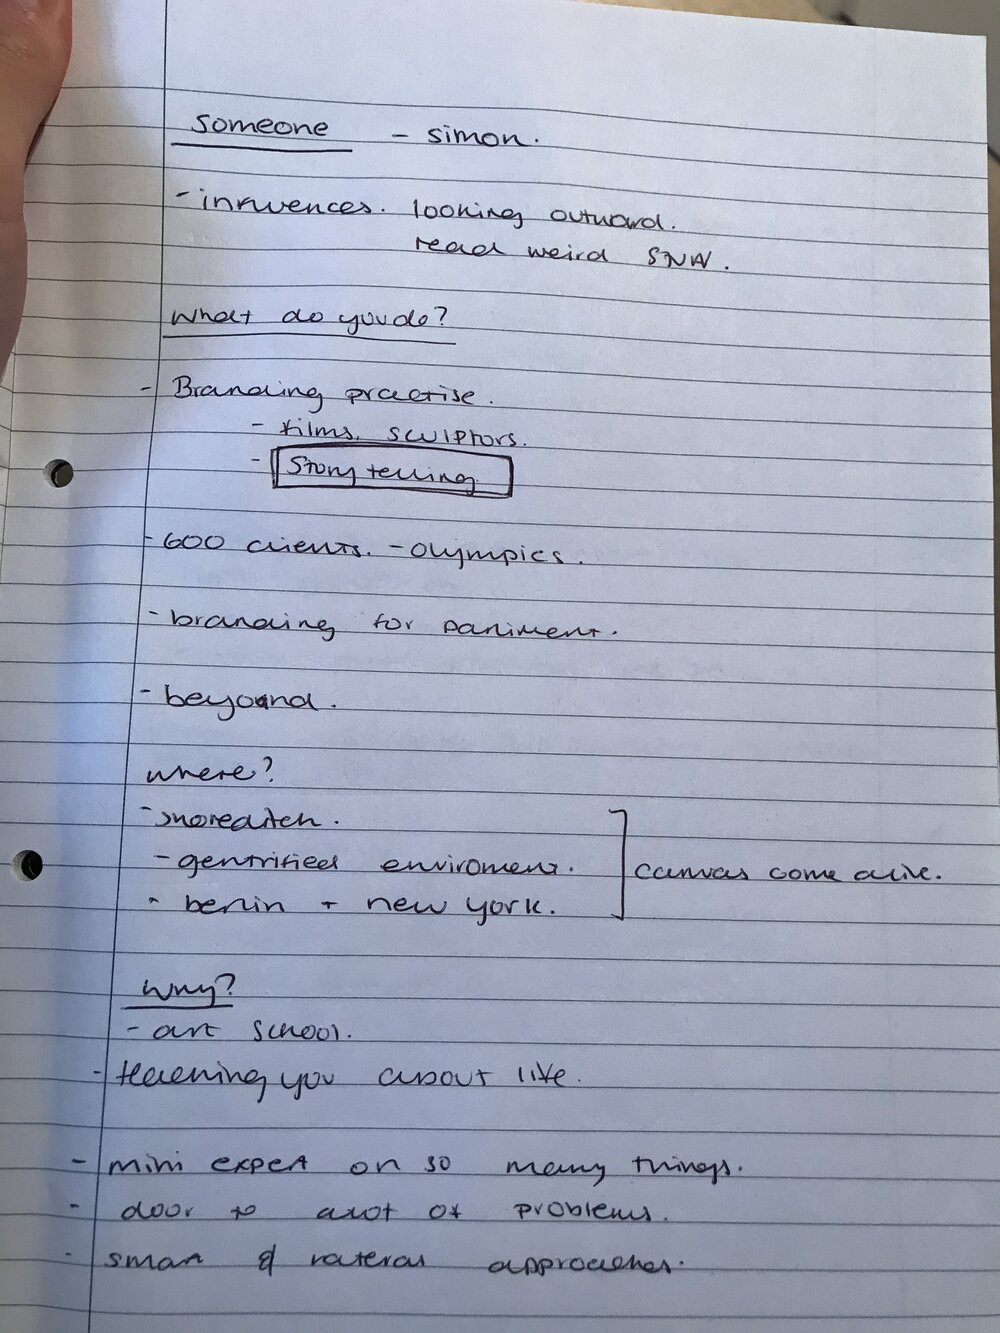 Someone - simon.
- influences. looking outward.
read weird
What do you do?
- Branding practise.
- films, sculptors.
- Story telling
- 600 clients. - Olympics.
- branding for
- beyond.
where?
- shoreditch.
- gentrified enviroment.
- berlin + new york.
canvas come alive.
Why?
- art school.
- teaching you about life.
- mini expert on so many things.
- door to alot of problems.
- smart & lateral approaches.